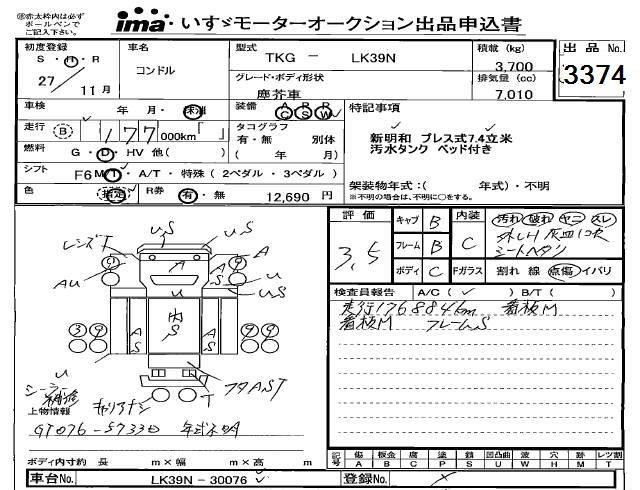 ㊟赤太枠内は必ず
ボールペンで
ご記入下さい。
ima いすゞモーターオークション出品申込書
初度登録 S・H・R 27/11月
車名 コンドル
型式 TKG － LK39N
積載 (kg) 3,700
出品 No. 3374
グレード・ボディ形状 塵芥車
排気量 (cc) 7,010
車検 年 月・抹消
装備 A/C R/S R/W
特記事項
走行 (B) 177 000km「 」
タコグラフ 有・無 別体 ( 年 月)
新明和 プレス式7.4立米
汚水タンク ベッド付き
燃料 G・D・HV 他( )
シフト F6 M/T・A/T・特殊 ( 2ペダル ・ 3ペダル )
架装物年式：( 年式)・不明
※不明の場合は、不明に○をする。
色 R券 有・無 12,690 円
評価 3,5
キャブ B
フレーム B
ボディ C
内装 C
汚れ 破れ ヤニ スレ
シートヘタリ
Fガラス 割れ 線 点傷 イバリ
検査員報告 A/C ( ✓ ) B/T ( )
実行176884km 看板M
看板M フレームS
レンズT US U A U US AU
③ ④ ④ ④
A S 内S A S
U シーラー補修
キャリアナシ T フタAST
上物情報
ボディ内寸約 長 m×幅 m×高 m
記号 傷A 板金B 腐C 塗P 錆S 凹凸曲U 波W 穴H 跡M レンズ割T
車台No. LK39N－30076
登録No.